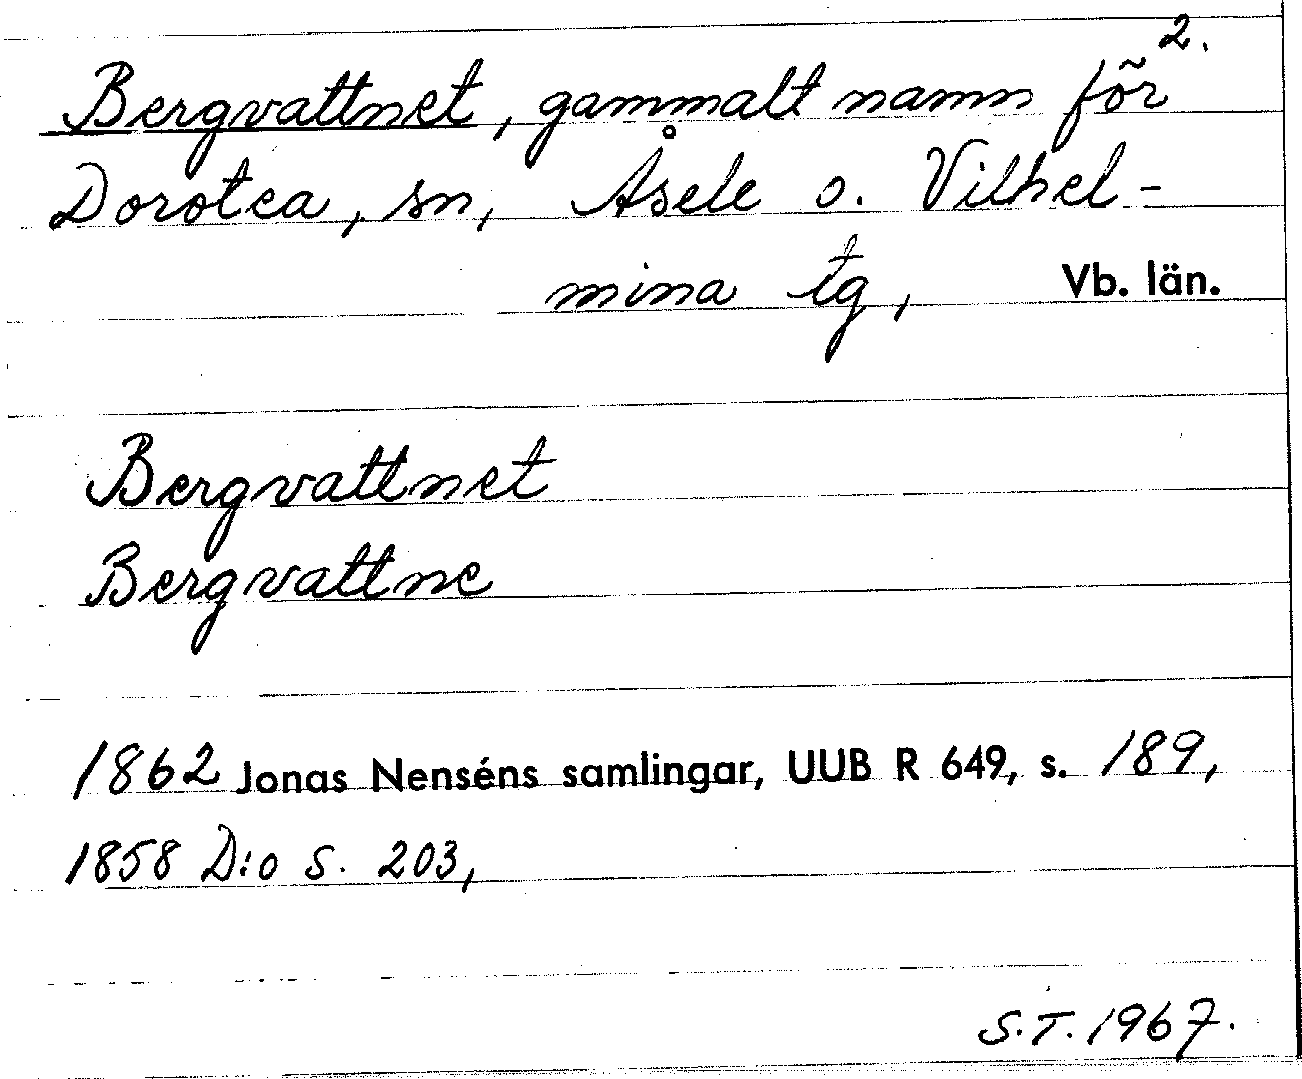 2.
Bergvattnet, gammalt namn för
Dorotea, sn, Åsele o. Vilhel-
mina tg, Vb. län.
Bergvattnet
Bergvattne
1862 Jonas Nenséns samlingar, UUB R 649, s. 189,
1858 D:o s. 203,
S.T. 1967.